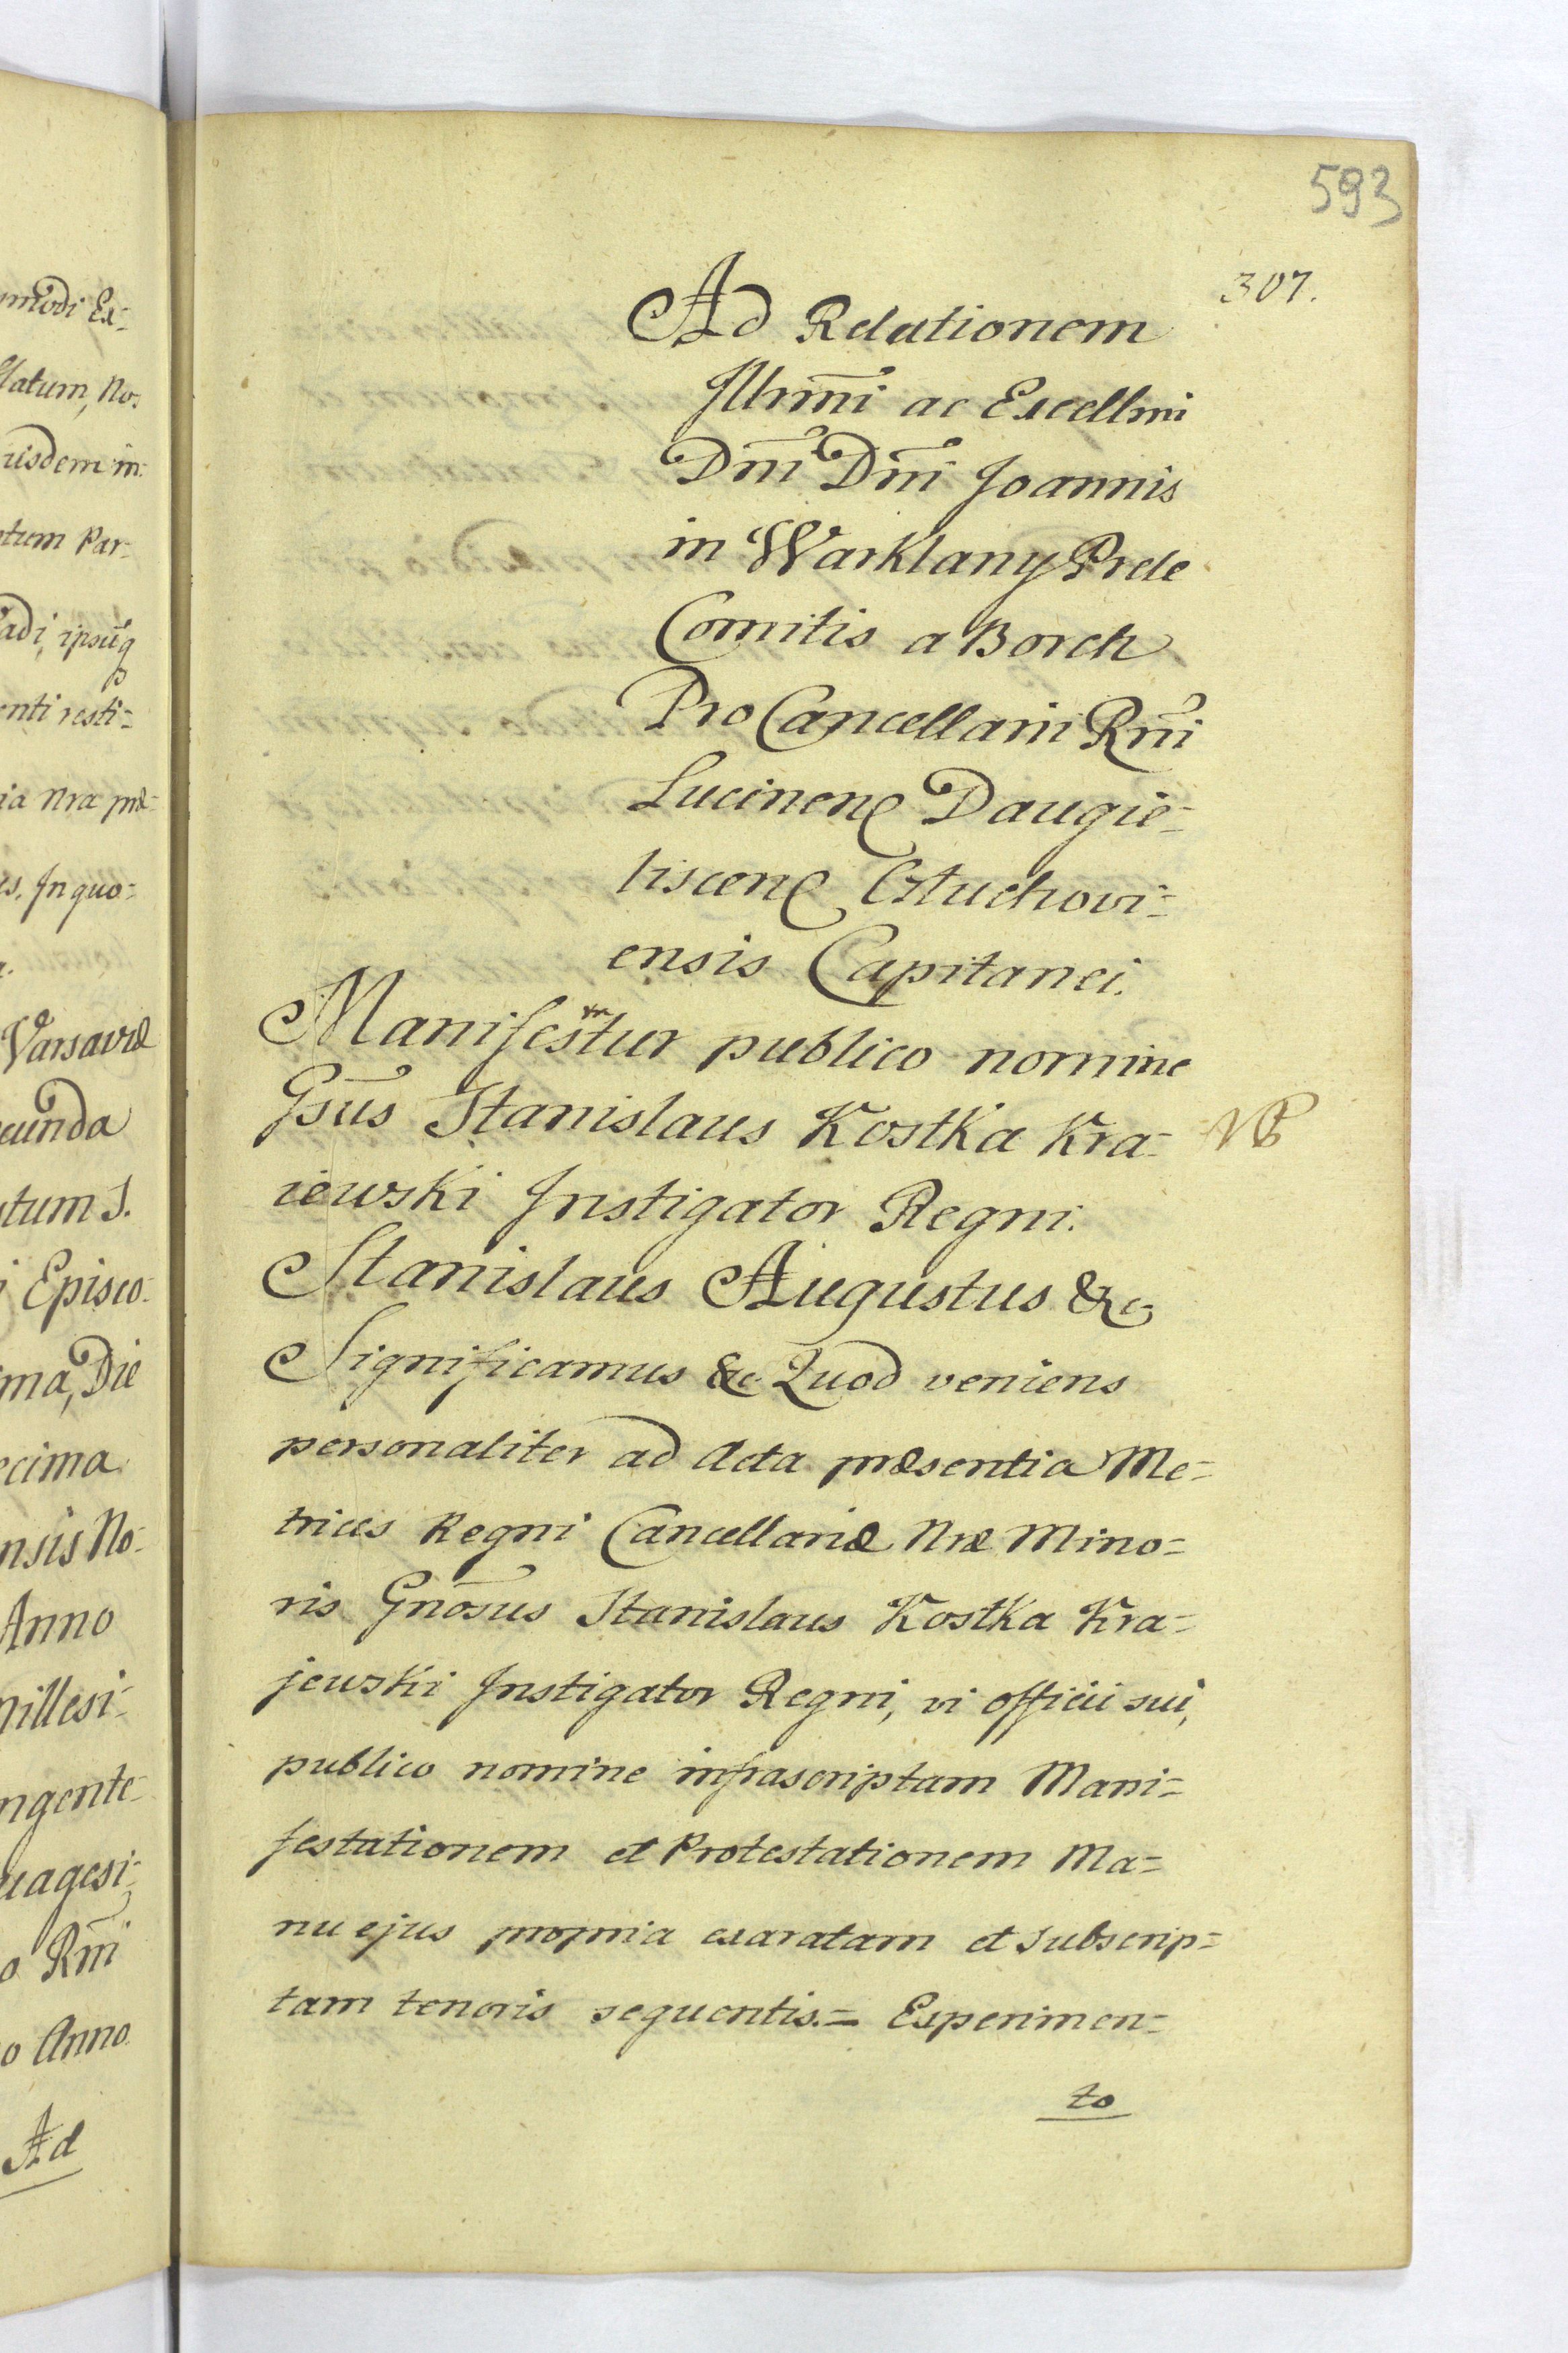 593
307.
Ad Relationem
Jllrm̃i ac Excellmi
Dñi Dñi Joannis
in Warklany Prele
Comitis a Borch
Pro Cancellarii Rñi
Lucinen Daugie=
liscen Gluchovi=
ensis Capitanei.
Manifestur publico nomine
Gsũs Stanislaus Kostka Kra=
NB
iewski Jnstigator Regni.
Stanislaus Augustus &c
Significamus &c Quod veniens
personaliter ad Acta præsentia Me=
trices Regni Cancellariæ Nræ Mino=
ris Gnõsus Stanislaus Kostka Kra=
jewski Jnstigator Regni, vi officii sui,
publico nomine infrascriptam Mani=
festationem et Protestationem Ma=
nu ejus propria exaratam et subscrip=
tam tenoris sequentis.= Experimen=
to
modi Ex=
latum, No=
iisdem in=
tum Par=
adi, ipsũq
enti resti=
ia Nra præ=
s. Jn quo=
Varsaviæ
cunda
tum S.
i Episco=
ma, Die
ecima
nsis No=
Anno
millesi=
ngente=
uagesi=
o Rñi
o Anno
Ad